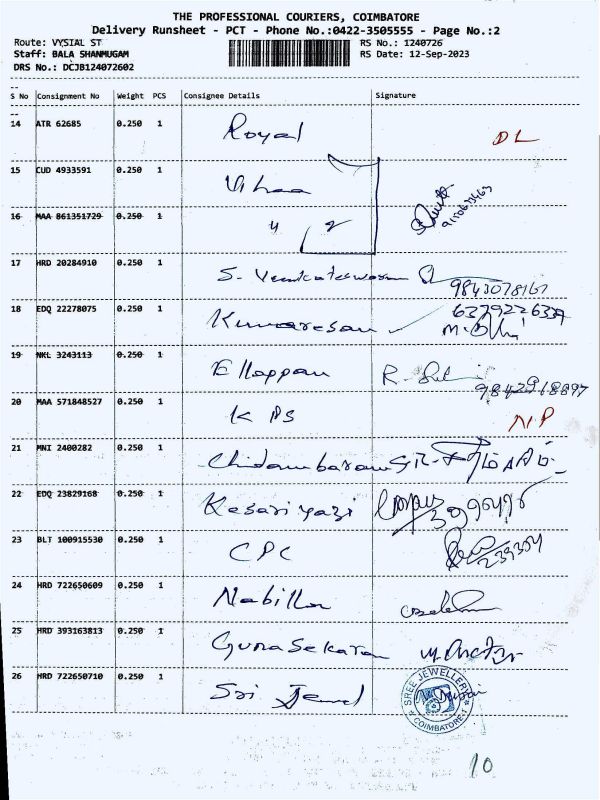 THE PROFESSIONAL COURIERS, COIMBATORE
Delivery Runsheet - PCT - Phone No.:0422-3505555 - Page No.:2
Route: VYSIAL ST RS No.: 1240726
Staff: BALA SHANMUGAM RS Date: 12-Sep-2023
DRS No.: DCJB124072602
S No Consignment No Weight PCS Consignee Details Signature
14 ATR 62685 0.250 1 Royal DL
15 CUD 4933591 0.250 1
16 MAA 861351729 0.250 1
17 HRD 20284910 0.250 1 S. Venkateswaran 9843078167
18 EDQ 22278075 0.250 1 Kumaresan
19 NKL 3243113 0.250 1 Ellappan
20 MAA 571848527 0.250 1 KPS N/P
21 MNI 2400282 0.250 1 Chidambaram
22 EDQ 23829168 0.250 1
23 BLT 100915530 0.250 1 CPC
24 HRD 722650609 0.250 1 Nabilla
25 HRD 393163813 0.250 1 Gunasekaran
26 HRD 722650710 0.250 1 Sri Jewel
SREE JEWELLERY
COIMBATORE-1
10